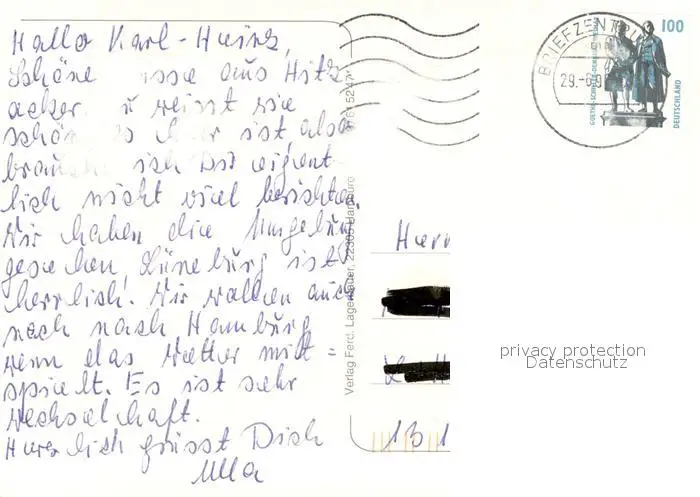 Hallo Karl-Heinz,
Schöne Grüsse aus Hitz
acker. Du weisst wie
schön es hier ist, also
brauche ich Dir eigent
lich nicht viel berichten.
Wir haben die Umgebung
gesehen, Lüneburg ist
herrlich! Wir wollen auch
noch nach Hamburg
wenn das Wetter mit=
spielt. Es ist sehr
wechselhaft.
Herzlich grüsst Dich
Ulla
Verlag Ferd. Lagerbauer, 22305 Hamburg
BRIEFZENTRUM
29.-6.9
100
GOETHE-SCHILLER-DENKMAL WEIMAR
DEUTSCHLAND
Herrn
13 1
privacy protection
Datenschutz